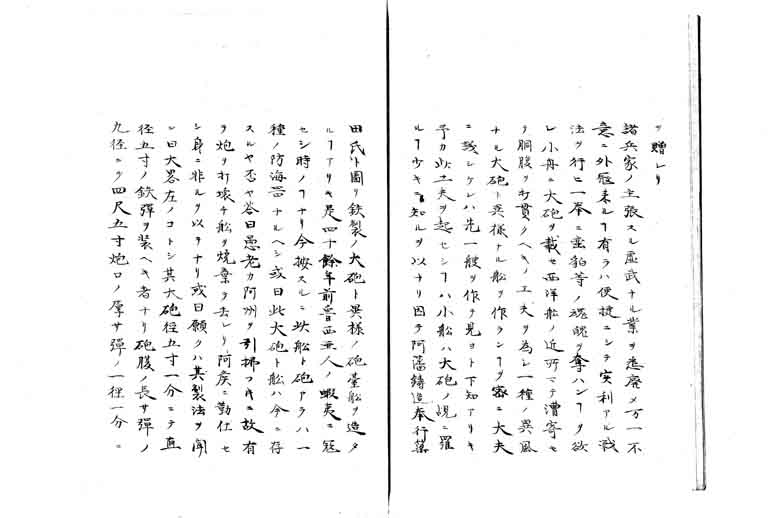 ヲ贈レリ
諸兵家ノ主張スル虚武ナル業ヲ悉廃メ万一不
意ニ外冦来ルヿ有ラハ便捷ニシテ実利アル戦
法ヲ行ヒ一挙ニ蛮狛等ノ魂魄ヲ奪ハンヿヲ欲
レ小舟ニ大砲ヲ載セ西洋船ノ近所マテ漕寄セ
ヲ胴腹ヲ打貫クヘキノ工夫ヲ為シ一種ノ異風
ナル大砲ト異様ナル船ヲ作ランヿヲ密ニ大夫
ニ談シケレハ先一艘ヲ作テ見ヨト下知アリキ
予カ此工夫ヲ起セシヿハ小船ハ大砲ノ的ニ罹
ルヿ少キヲ知ルヲ以ナリ因テ阿藩鋳造奉行葉
田氏ト圖リ鉄製ノ大砲ト異様ノ砲臺船ヲ造タ
ルヿアリキ是四十餘年前魯西亜人ノ蝦夷ニ冦
セシ時ノヿナリ今按スルニ此船ト砲アラハ一
種ノ防海器ナルヘシ或曰此大砲ト船ハ今ニ存
スルヤ否ヤ答曰愚老カ阿州ヲ引掃フキニ故有
ヲ炮ヲ打壊チ船ヲ焼棄テ去レリ阿矦ニ勤仕セ
シ身ニ非ルヲ以テナリ或曰願クハ其製法ヲ聞
ン曰大畧左ノコトシ其大砲径五寸一分ニテ直
径五寸ノ鉄彈ヲ装ヘキ者ナリ砲腹ノ長サ彈ノ
九径ニヲ四尺五寸炮口ノ厚サ彈ノ一径一分ニ